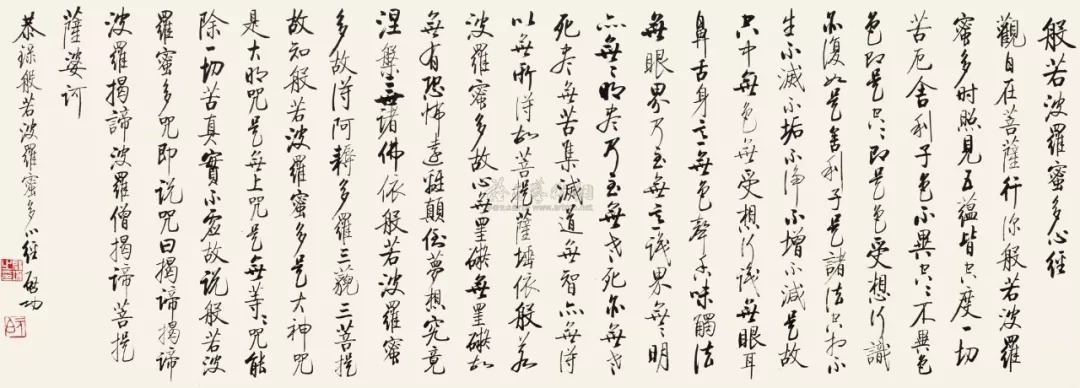 般若波羅蜜多心經
觀自在菩薩行深般若波羅
蜜多时照見五蘊皆空度一切
苦厄舍利子色不異空々不異色
色即是空々即是色受想行識
亦復如是舍利子是諸法空相不
生不滅不垢不淨不增不減是故
空中無色無受想行識無眼耳
鼻舌身意無色聲香味觸法
無眼界乃至無意識界無々明
亦無々明盡乃至無老死亦無老
死盡無苦集滅道無智亦無得
以無所得故菩提薩埵依般若
波羅蜜多故心無罣礙無罣礙故
無有恐怖遠離顛倒夢想究竟
涅槃三世諸佛依般若波羅蜜
多故得阿耨多羅三藐三菩提
故知般若波羅蜜多是大神咒
是大明咒是無上咒是無等々咒能
除一切苦真實不虛故說般若波
羅蜜多咒即說咒曰揭諦揭諦
波羅揭諦波羅僧揭諦菩提
薩婆訶
恭錄般若波羅蜜多心經 啟功